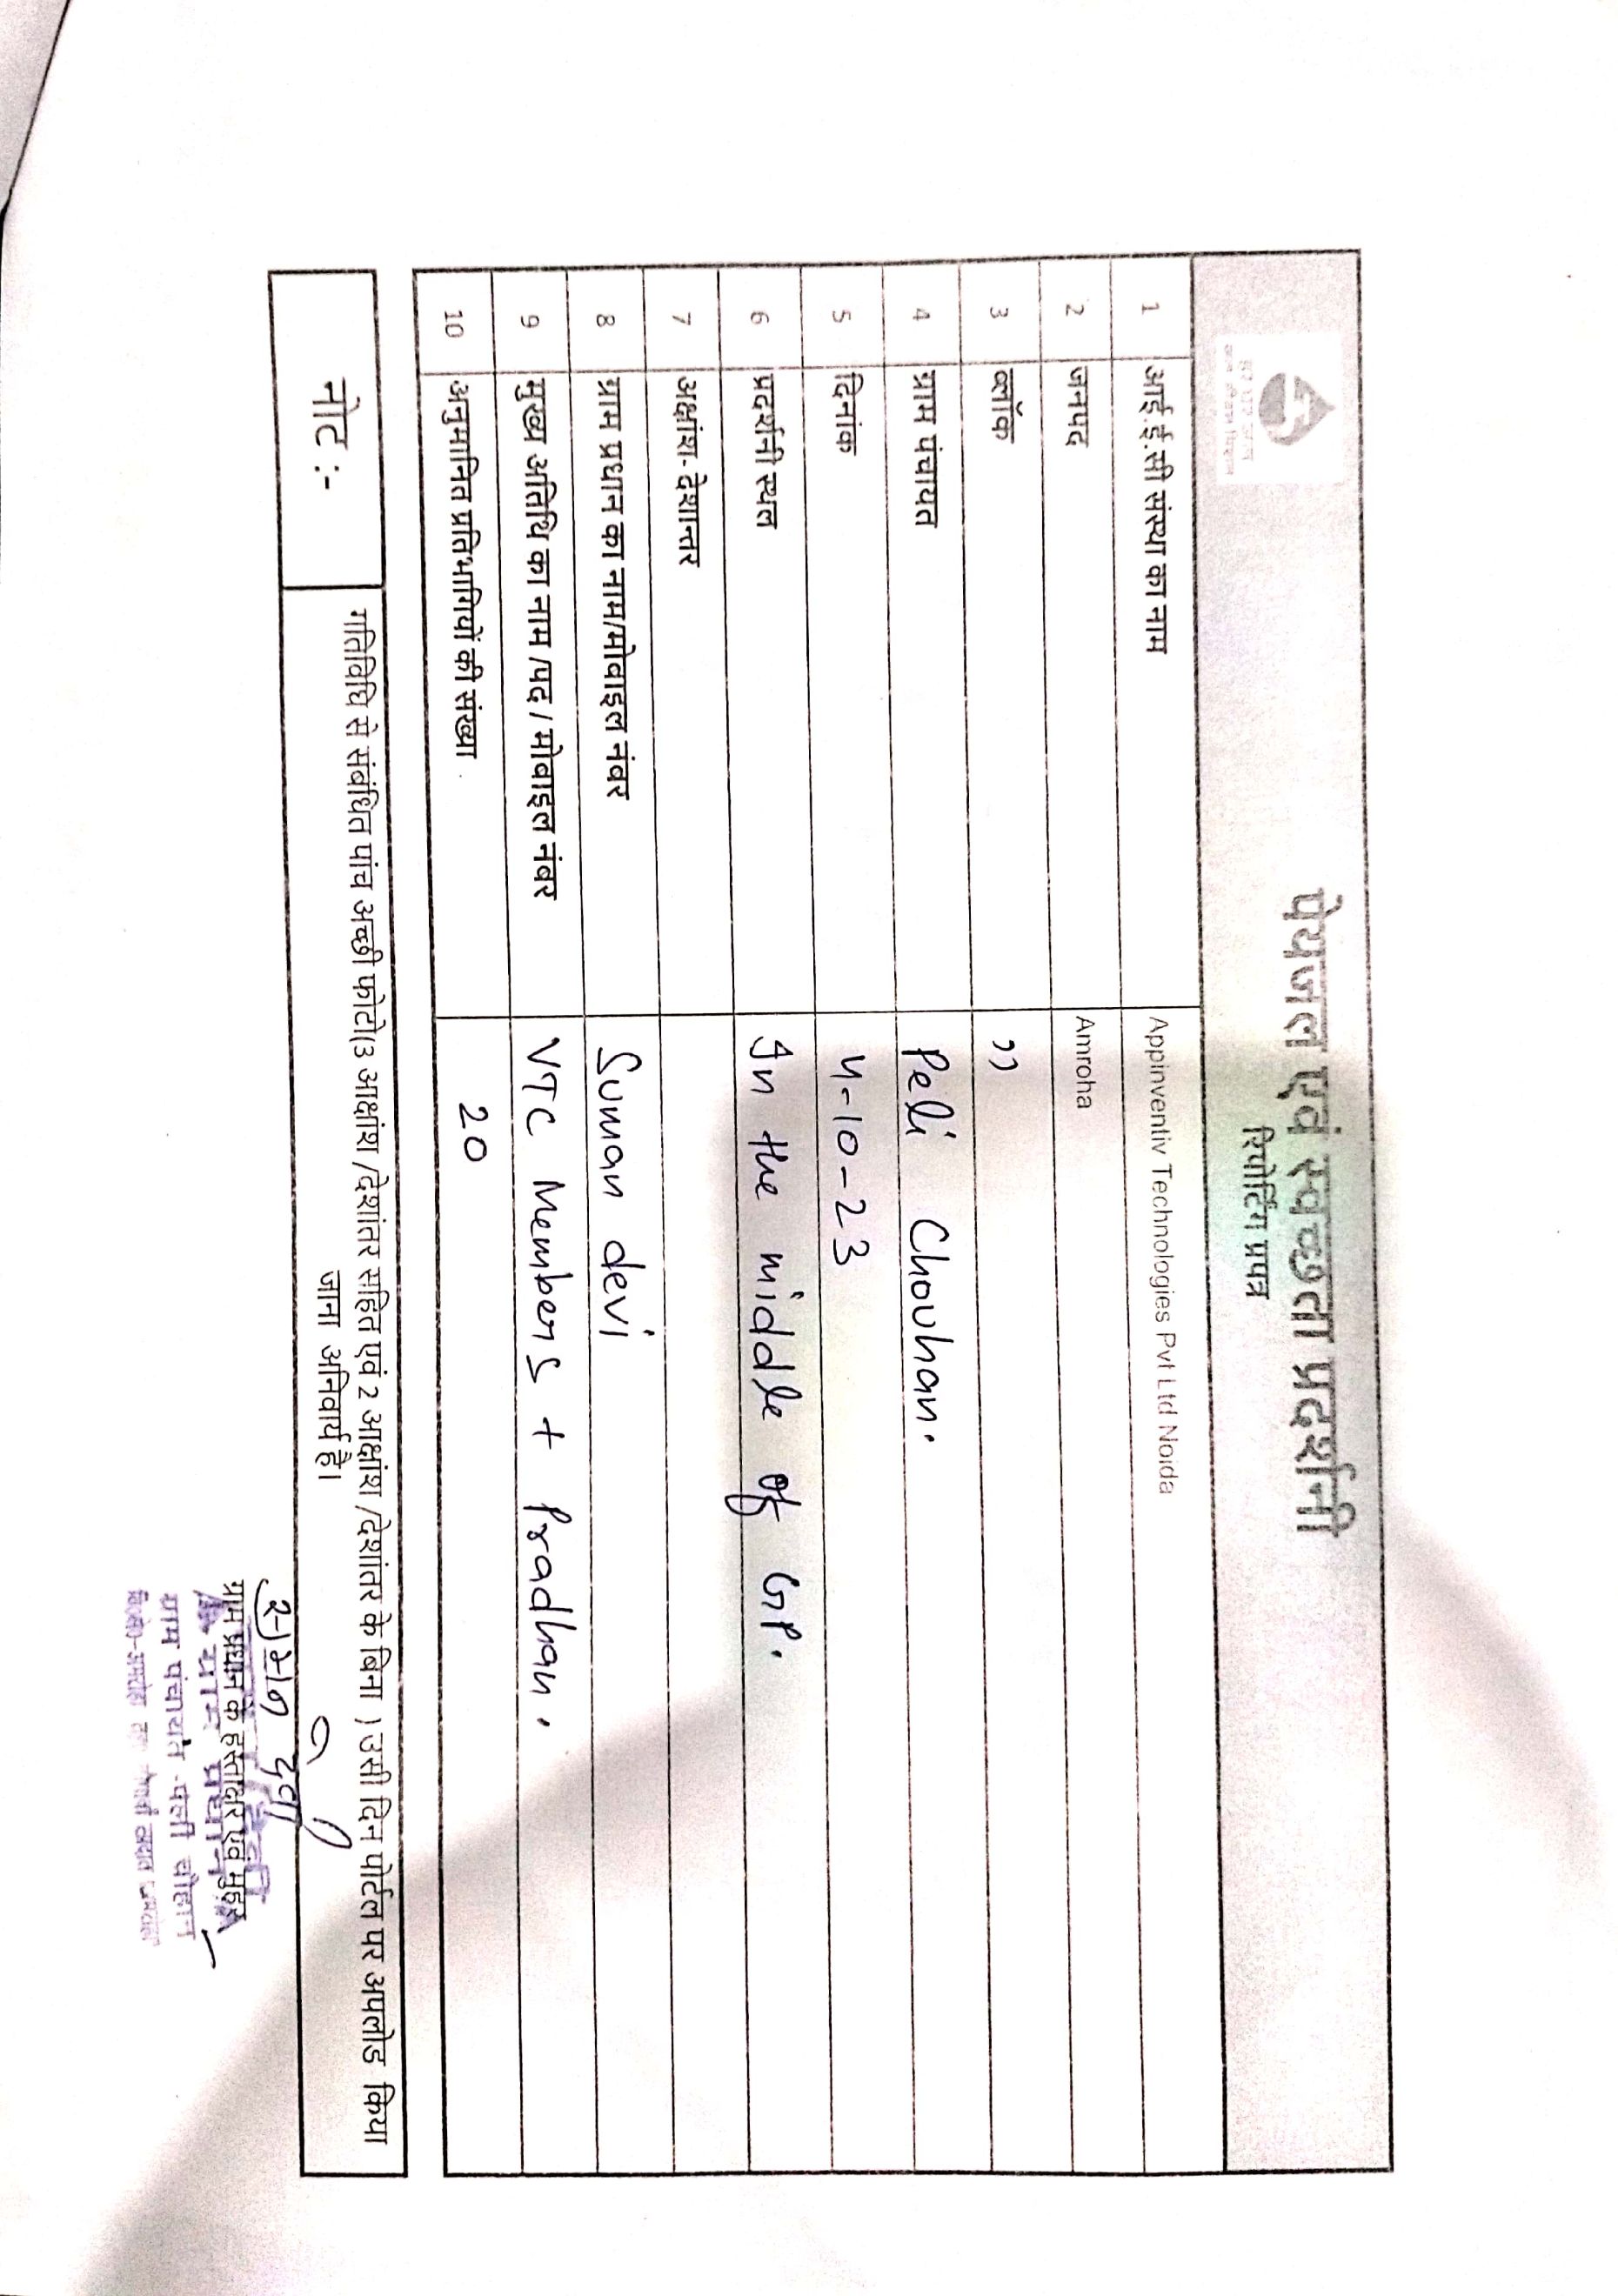 पेयजल एवं स्वच्छता प्रदर्शनी
रिपोर्टिंग प्रपत्र
1 आई.ई.सी संस्था का नाम Appinventiv Technologies Pvt Ltd Noida
2 जनपद Amroha
3 ब्लॉक ”
4 ग्राम पंचायत Peli Chouhan.
5 दिनांक 4-10-23
6 प्रदर्शनी स्थल In the middle of GP.
7 अक्षांश-देशान्तर
8 ग्राम प्रधान का नाम/मोबाइल नंबर Suman devi
9 मुख्य अतिथि का नाम /पद / मोबाइल नंबर VTC Members + Pradhan.
10 अनुमानित प्रतिभागियों की संख्या 20
नोट :- गतिविधि से संबंधित पांच अच्छी फोटो(3 आक्षांश /देशांतर सहित एवं 2 आक्षांश /देशांतर के बिना ) उसी दिन पोर्टल पर अपलोड किया
जाना अनिवार्य है।
सुमन देवी
ग्राम प्रधान के हस्ताक्षर एवं मुहर
ग्राम प्रधान
ग्राम पंचायत-पेली चौहान